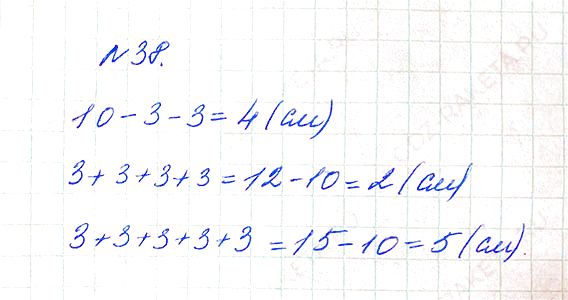 N38.
10 - 3 - 3 = 4 (см)
3 + 3 + 3 + 3 = 12 - 10 = 2 (см)
3 + 3 + 3 + 3 + 3 = 15 - 10 = 5 (см).